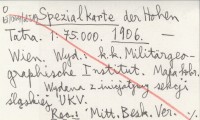 Spezialkarte der Hohen
Tatra. 1:75.000. 1906. —
Wien. Wyd. k.k. Militärgeo-
graphische Institut. Mapa kolor.
Wydana z inicjatywy sekcji
śląskiej UKV.
Rec.: "Mitt. Besk. Ver."